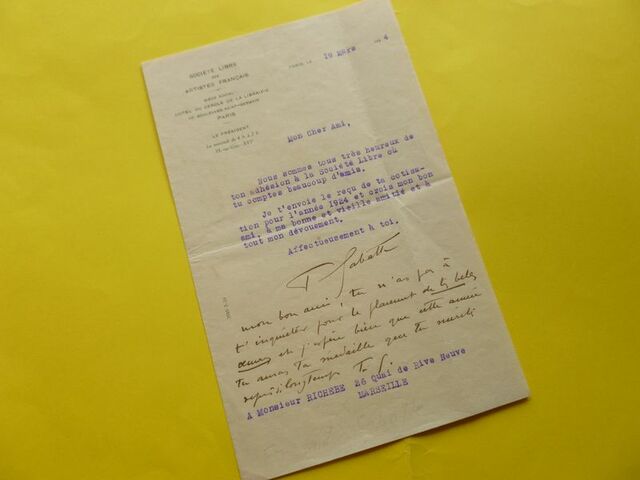 SOCIÉTÉ LIBRE
DES
ARTISTES FRANÇAIS
SIÈGE SOCIAL
HOTEL DU CERCLE DE LA LIBRAIRIE
117, BOULEVARD SAINT-GERMAIN
PARIS
LE PRÉSIDENT
PARIS, LE 19 Mars 4
Mon Cher Ami,
Nous sommes tous très heureux de
ton adhésion à la Société Libre où
tu comptes beaucoup d'amis.
Je t'envoie le reçu de ta cotisa-
tion pour l'année 1924 et crois mon bon
ami, à ma bonne et vieille amitié et à
tout mon dévouement.
Affectueusement à toi.
mon bon ami, tu n'as pas à
t'inquiéter pour le placement de tes belles
œuvres et j'espère bien que cette année
tu auras ta médaille que tu mérites
depuis longtemps
A Monsieur RICHEBE 26 Quai de Rive Neuve
MARSEILLE